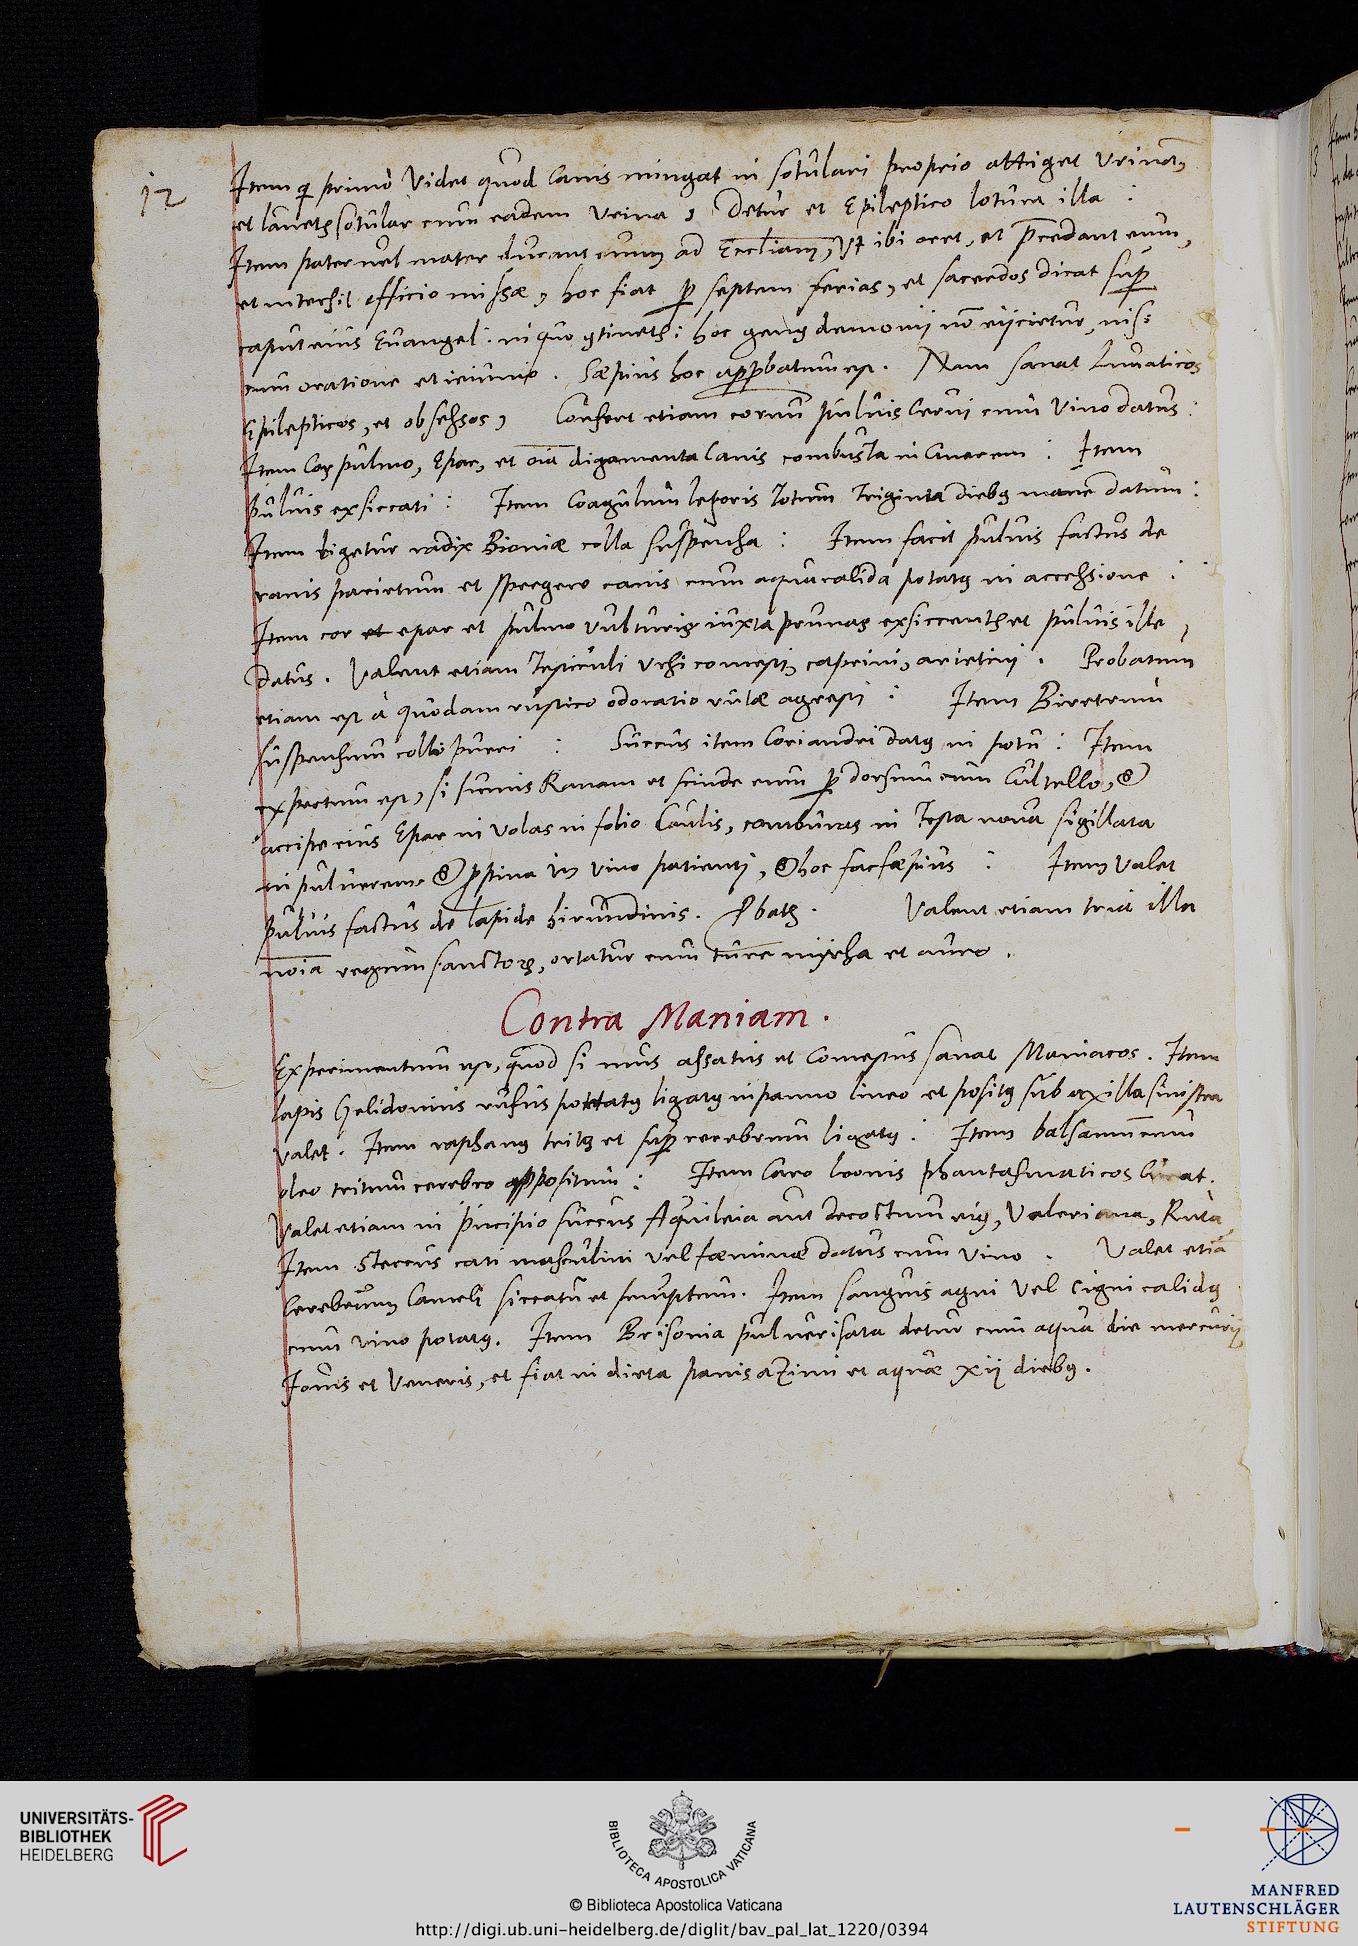 12
Item q̃ primo videt quod Canis mingat in sotulari proprio attiget Urinaȝ
et lauetꝭ sotular cum eadem Urina, Detur et Epileptico lotura illa :
Item pater uel mater ducant eum ad Eccliam, Vt ibi oret, et p̄cedant eum,
et intersit officio missæ, hoc fiat p septem ferias, et sacerdos dicat sup
caput eius Euangel: in quo ɔtinetꝭ: hoc genꝰ demonij nō eijcietur, nisi
cum oratione et ieiunio. Sæpius hoc approbatum est. Nam sanat Lunaticos
Epilepticos, et obsessos, Confert etiam cornu puluis Cerui cum Vino datus:
Item Cor pulmo, Epar, et oīa digamenta Canis combusta in Cinerem : Item
puluis exsiccati : Item Coagulum leporis totum Triginta diebꝰ mane datum :
Item ligetur radix Pioniæ collo suspensa : Item facit puluis factus de
ranis parietum et stercore canis cum aqua calida potatꝰ in accessione :
Item cor et epar et pulmo vulturis iuxta prunas exsiccentꝭ et puluis ille
datus. Valent etiam Testiculi Ursi comesti, caprini, arietini. Probatum
etiam est à quodam rustico odoratio rutæ agresti : Item Piretrum
suspensum collo pueri : Succus item Coriandri datꝰ in potu : Item
expertum est, si sumis Ranam et scinde eum p dorsum cum Cultello, &
accipe eius Epar inuolas in folio Caulis, comburas in Testa noua sigillata
in puluerem & ꝓpina in vino patienti, & hoc fac sæpius : Item valet
puluis factus de lapide hirundinis. Pbatꝭ. Valent etiam tria illa
noīa regum sanctorꝭ, ortatur cum ture myrha et auro.
Contra Maniam.
Experimentum est, quod si mus assatus et comestus sanat Maniacos. Item
lapis Celidonius rufus portatꝰ ligatꝰ in panno lineo et positꝰ sub axilla sinistra
valet. Item raphanꝰ tritꝰ et sup cerebrum ligatꝰ : Item balsamū cum
oleo tritum cerebro appositum : Item Caro leonis phantasmaticos Curat.
Valet etiam in pincipio succus Aquileia aut decoctum eiꝰ, Valeriana, Ruta
Item Stercus cati masculini vel fæminæ datus cum vino. Valet etiā
Cerebrum Cameli siccatū et sumptum. Item sanguis agni vel cigni calidꝰ
cum vino potatꝰ. Item Brionia puluerisata detur cum aqua die mercurij,
Jouis et Veneris, et fiat in dieta panis azimi et aquæ xij diebꝰ.
UNIVERSITÄTS-
BIBLIOTHEK
HEIDELBERG
BIBLIOTECA APOSTOLICA VATICANA
© Biblioteca Apostolica Vaticana
http://digi.ub.uni-heidelberg.de/diglit/bav_pal_lat_1220/0394
MANFRED
LAUTENSCHLÄGER
STIFTUNG